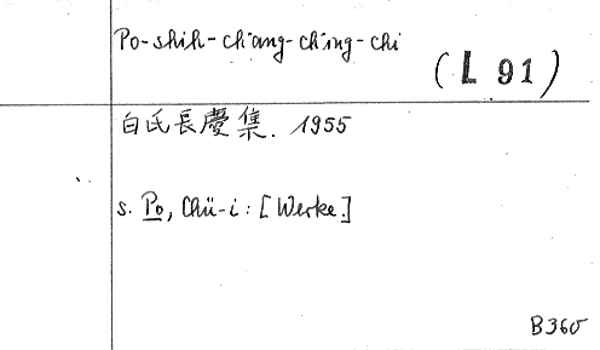 Po-shih-ch'ang-ch'ing-chi
(L 91)
白氏長慶集. 1955
s. Po, Chü-i: [Werke.]
B360